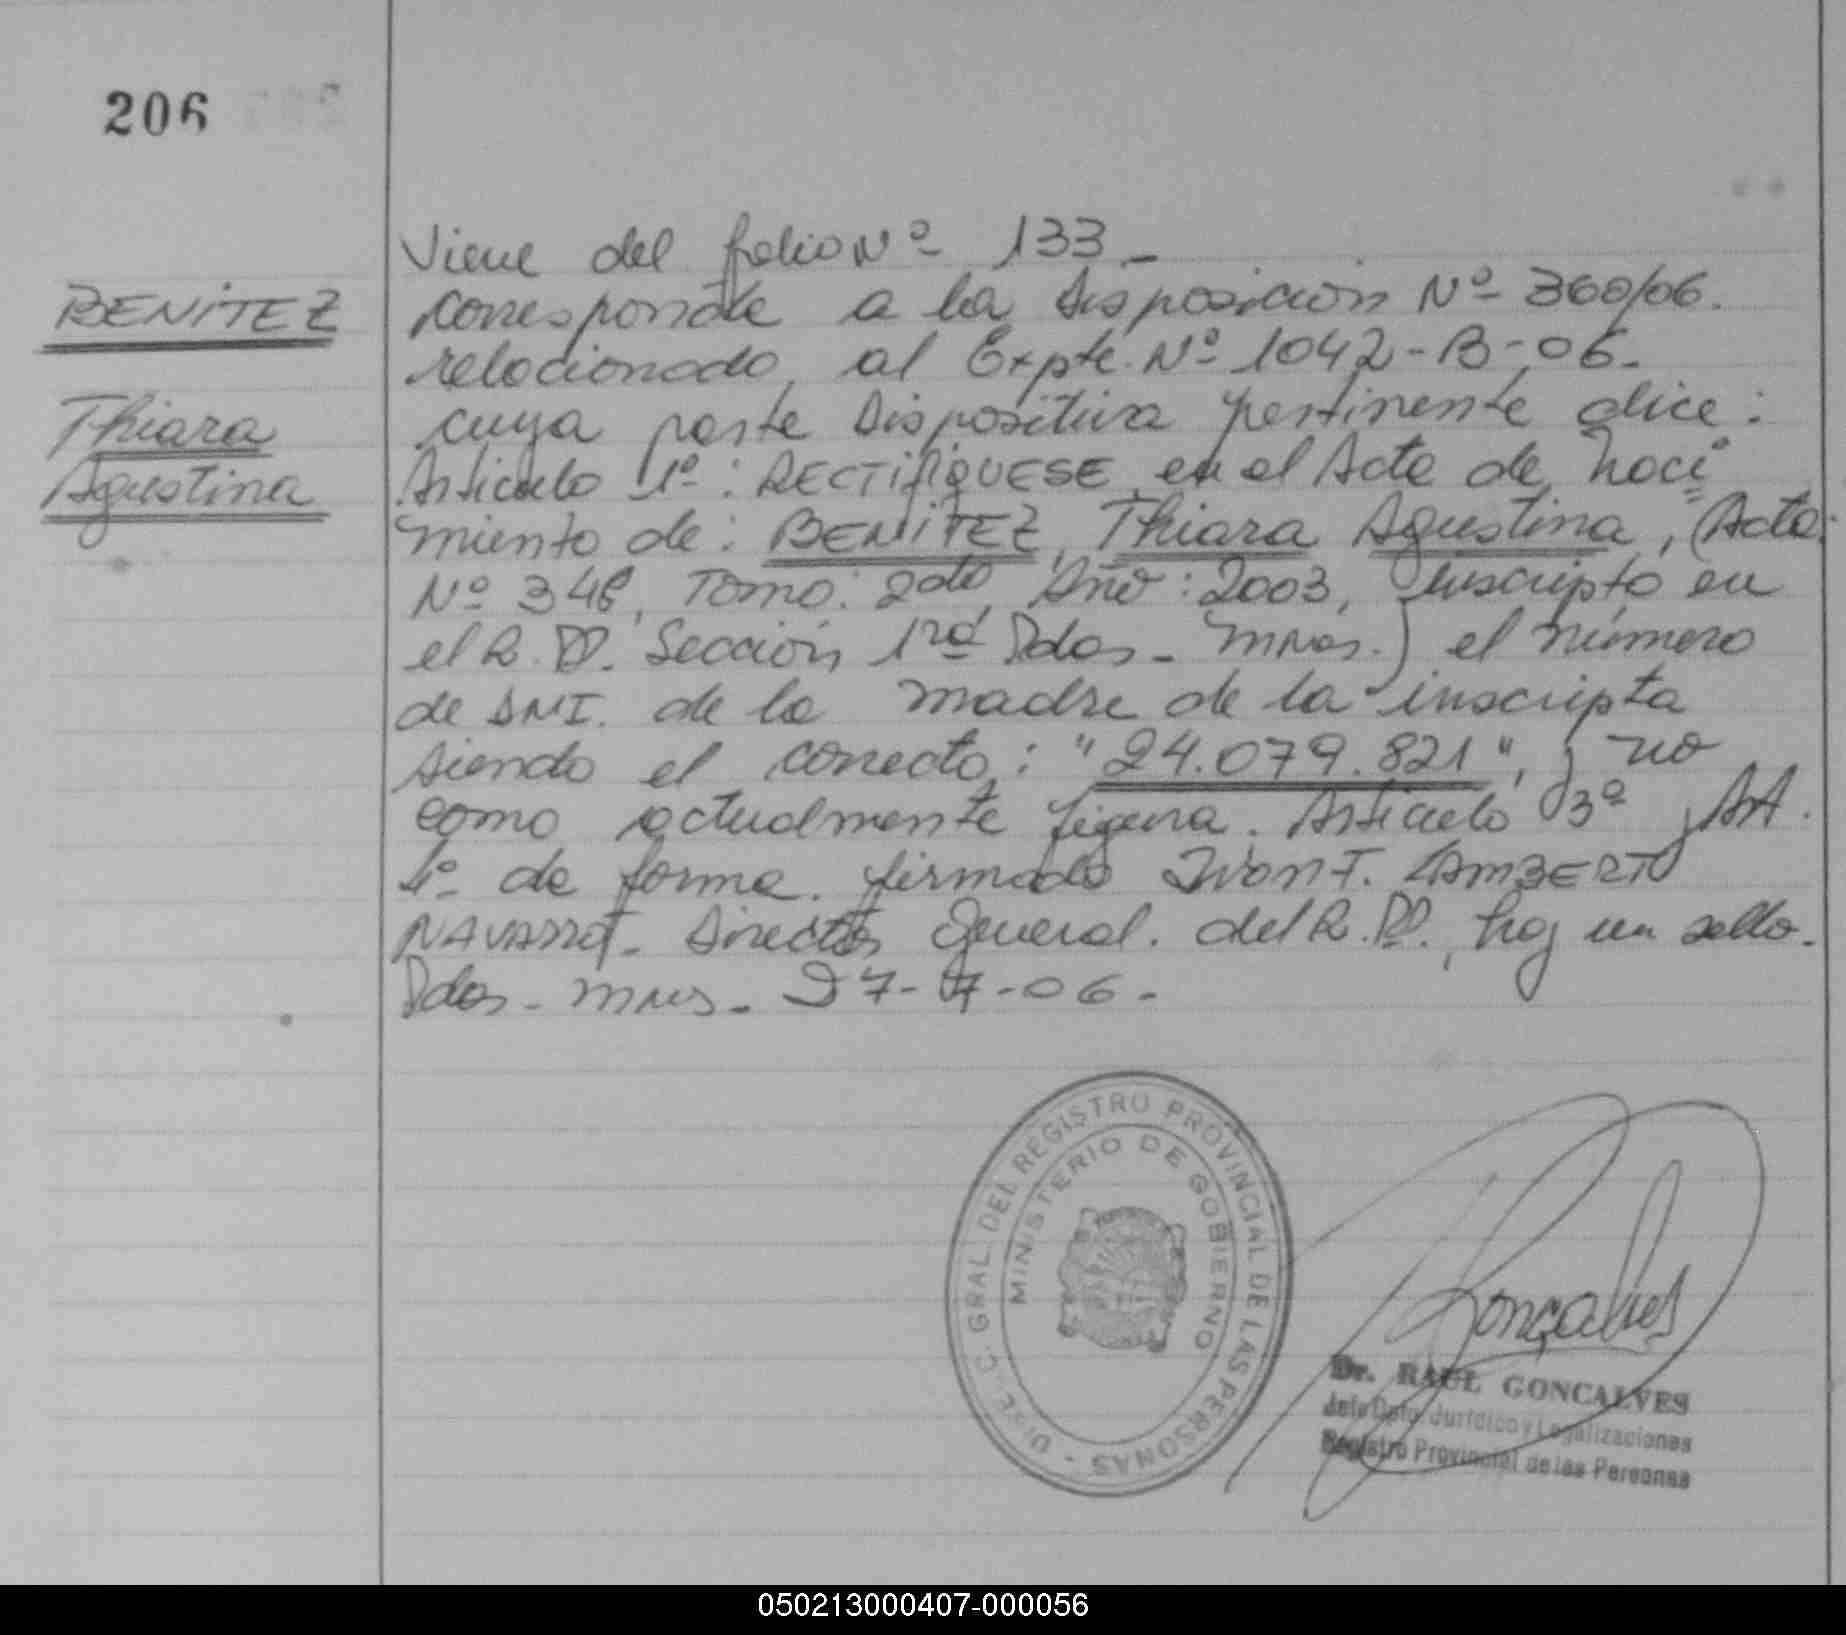 206
BENITEZ
Thiara
Agustina
Viene del folio Nº 133_
corresponde a la Disposición Nº 360/06.
relacionado, al Expte. Nº 1042-B-06-
cuya parte Dispositiva pertinente dice:
Artículo 1º: RECTIFIQUESE en el Acta de naci
miento de: BENITEZ, Thiara Agustina, (Acta
Nº 346, Tomo: 2do, Año: 2003, inscripto en
el R.PP. Sección 1ra Pdas - Mnes.) el número
de DNI. de la madre de la inscripta
siendo el correcto: "24.079.821", y no
como actualmente figura. Artículo 3º y Art.
4º de forma. firmado Ivan T. LAMBERT
NAVARRO- Director General. del R.PP., hay un sello.
Pdas - Mnes - 27-7-06-
DIREC. GRAL. DEL REGISTRO PROVINCIAL DE LAS PERSONAS -
MINISTERIO DE GOBIERNO
Goncalves
Dr. RAUL GONCALVES
Jefe Dpto. Jurídico y Legalizaciones
Registro Provincial de las Personas
050213000407-000056